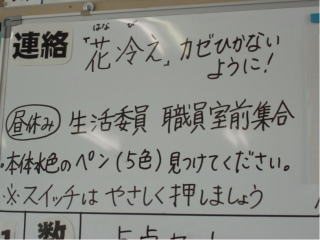 連絡
はな び
「花冷え」カゼひかない
ように!
昼休み 生活委員 職員室前集合
・本体水色のペン(5色)見つけてください。
※スイッチは やさしく押しましょう
数